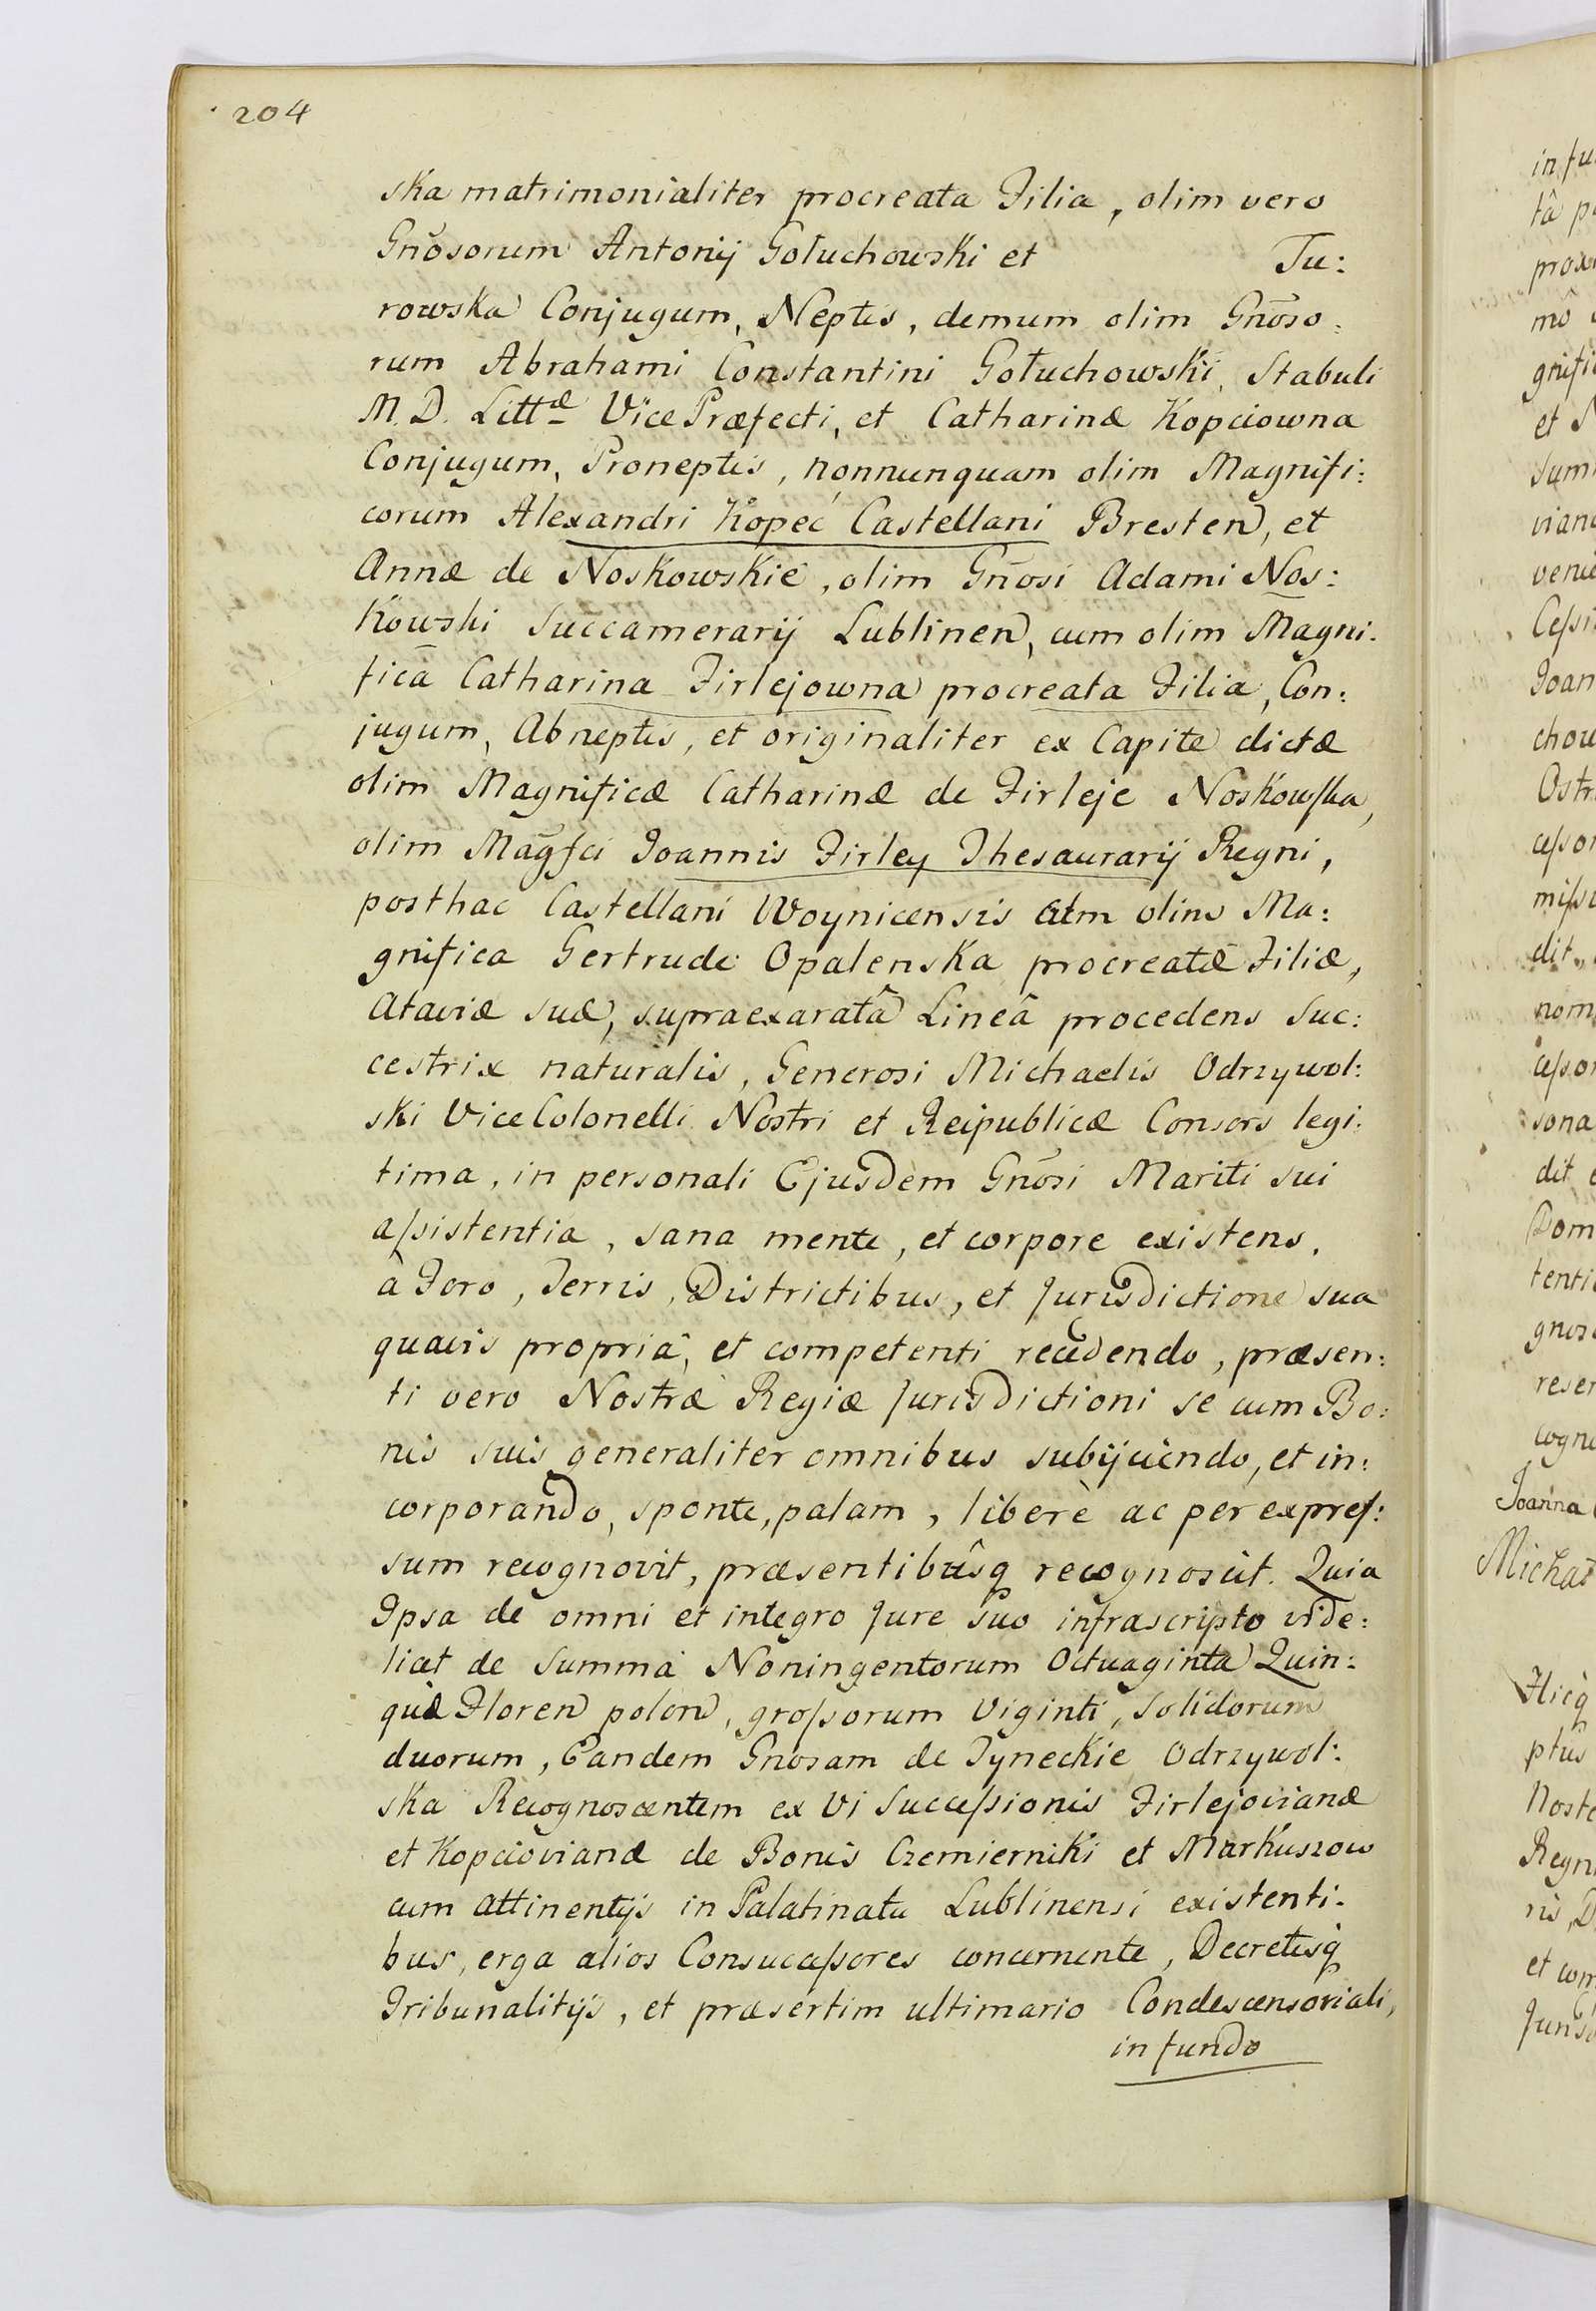 204
ska matrimonialiter procreata Filia, olim vero
Gnõsorum Antonij Gołuchowski et Tu:
rowska Conjugum, Neptis, demum olim Gnõso:
rum Abrahami Constantini Gołuchowski, Stabuli
M. D. Littæ Vice Præfecti, et Catharinæ Kopciowna
Conjugum, Proneptis, nonnunquam olim Magnifi:
corum Alexandri Kopeć Castellani Bresten, et
Annæ de Noskowskie, olim Gnõsi Adami Nos:
kowski Succamerarij Lublinen, cum olim Magni:
ficā Catharina Firlejowna procreata Filia, Con:
jugum, Abneptis, et originaliter ex Capite dictæ
olim Magnificæ Catharinæ de Firleje Noskowſka,
olim Magfci Joannis Firley Thesaurarij Regni,
posthac Castellani Woynicensis cum olim Ma:
gnifica Gertrude Opalenska procreatæ Filiæ,
Ataviæ suæ, supraexaratâ Lineâ procedens Suc:
cestrix naturalis, Generosi Michaelis Odrzywol:
ski Vice Colonelli Nostri et Reipublicæ Consors legi:
tima, in personali Ejusdem Gnõsi Mariti sui
aſsistentia, sana mente, et corpore existens,
à Foro, Terris, Districtibus, et Jurisdictione sua
quavis propriâ, et competenti recedendo, præsen:
ti vero Nostræ Regiæ Jurisdictioni se cum Bo:
nis suis generaliter omnibus subijciendo, et in:
corporando, sponte, palam, liberè ac per expreſ:
sum recognovit, præsentibûsq recognoscit. Quia
Ipsa de omni et integro Jure suo infrascripto vide:
licet de Summa Noningentorum Octuaginta Quin:
què Floren polon, groſsorum Viginti, Solidorum
duorum, Eandem Gnosam de Tyneckie Odrzywol:
ska Recognoscentem ex Vi Succeſsionis Firlejovianæ
et Kopciovianæ de Bonis Czemierniki et Markuszow
cum attinentijs in Palatinatu Lublinensi existenti:
bus, erga alios Consucceſsores concernente, Decretisq
Tribunalitijs, et præsertim ultimario Condescensoriali,
in fundo
in fu
tâ p
prox
mô
gnifi
et
Sum
viana
venie
Ceſsi
Joan
chow
Ostr
ceſsor
miſsi
dit,
nom
ceſsor
sona
dit
Dom
tenti
gnos
reser
cogno
Joanna
Micha
Hicq
ptus
Nost
Regn
ris, D
et com